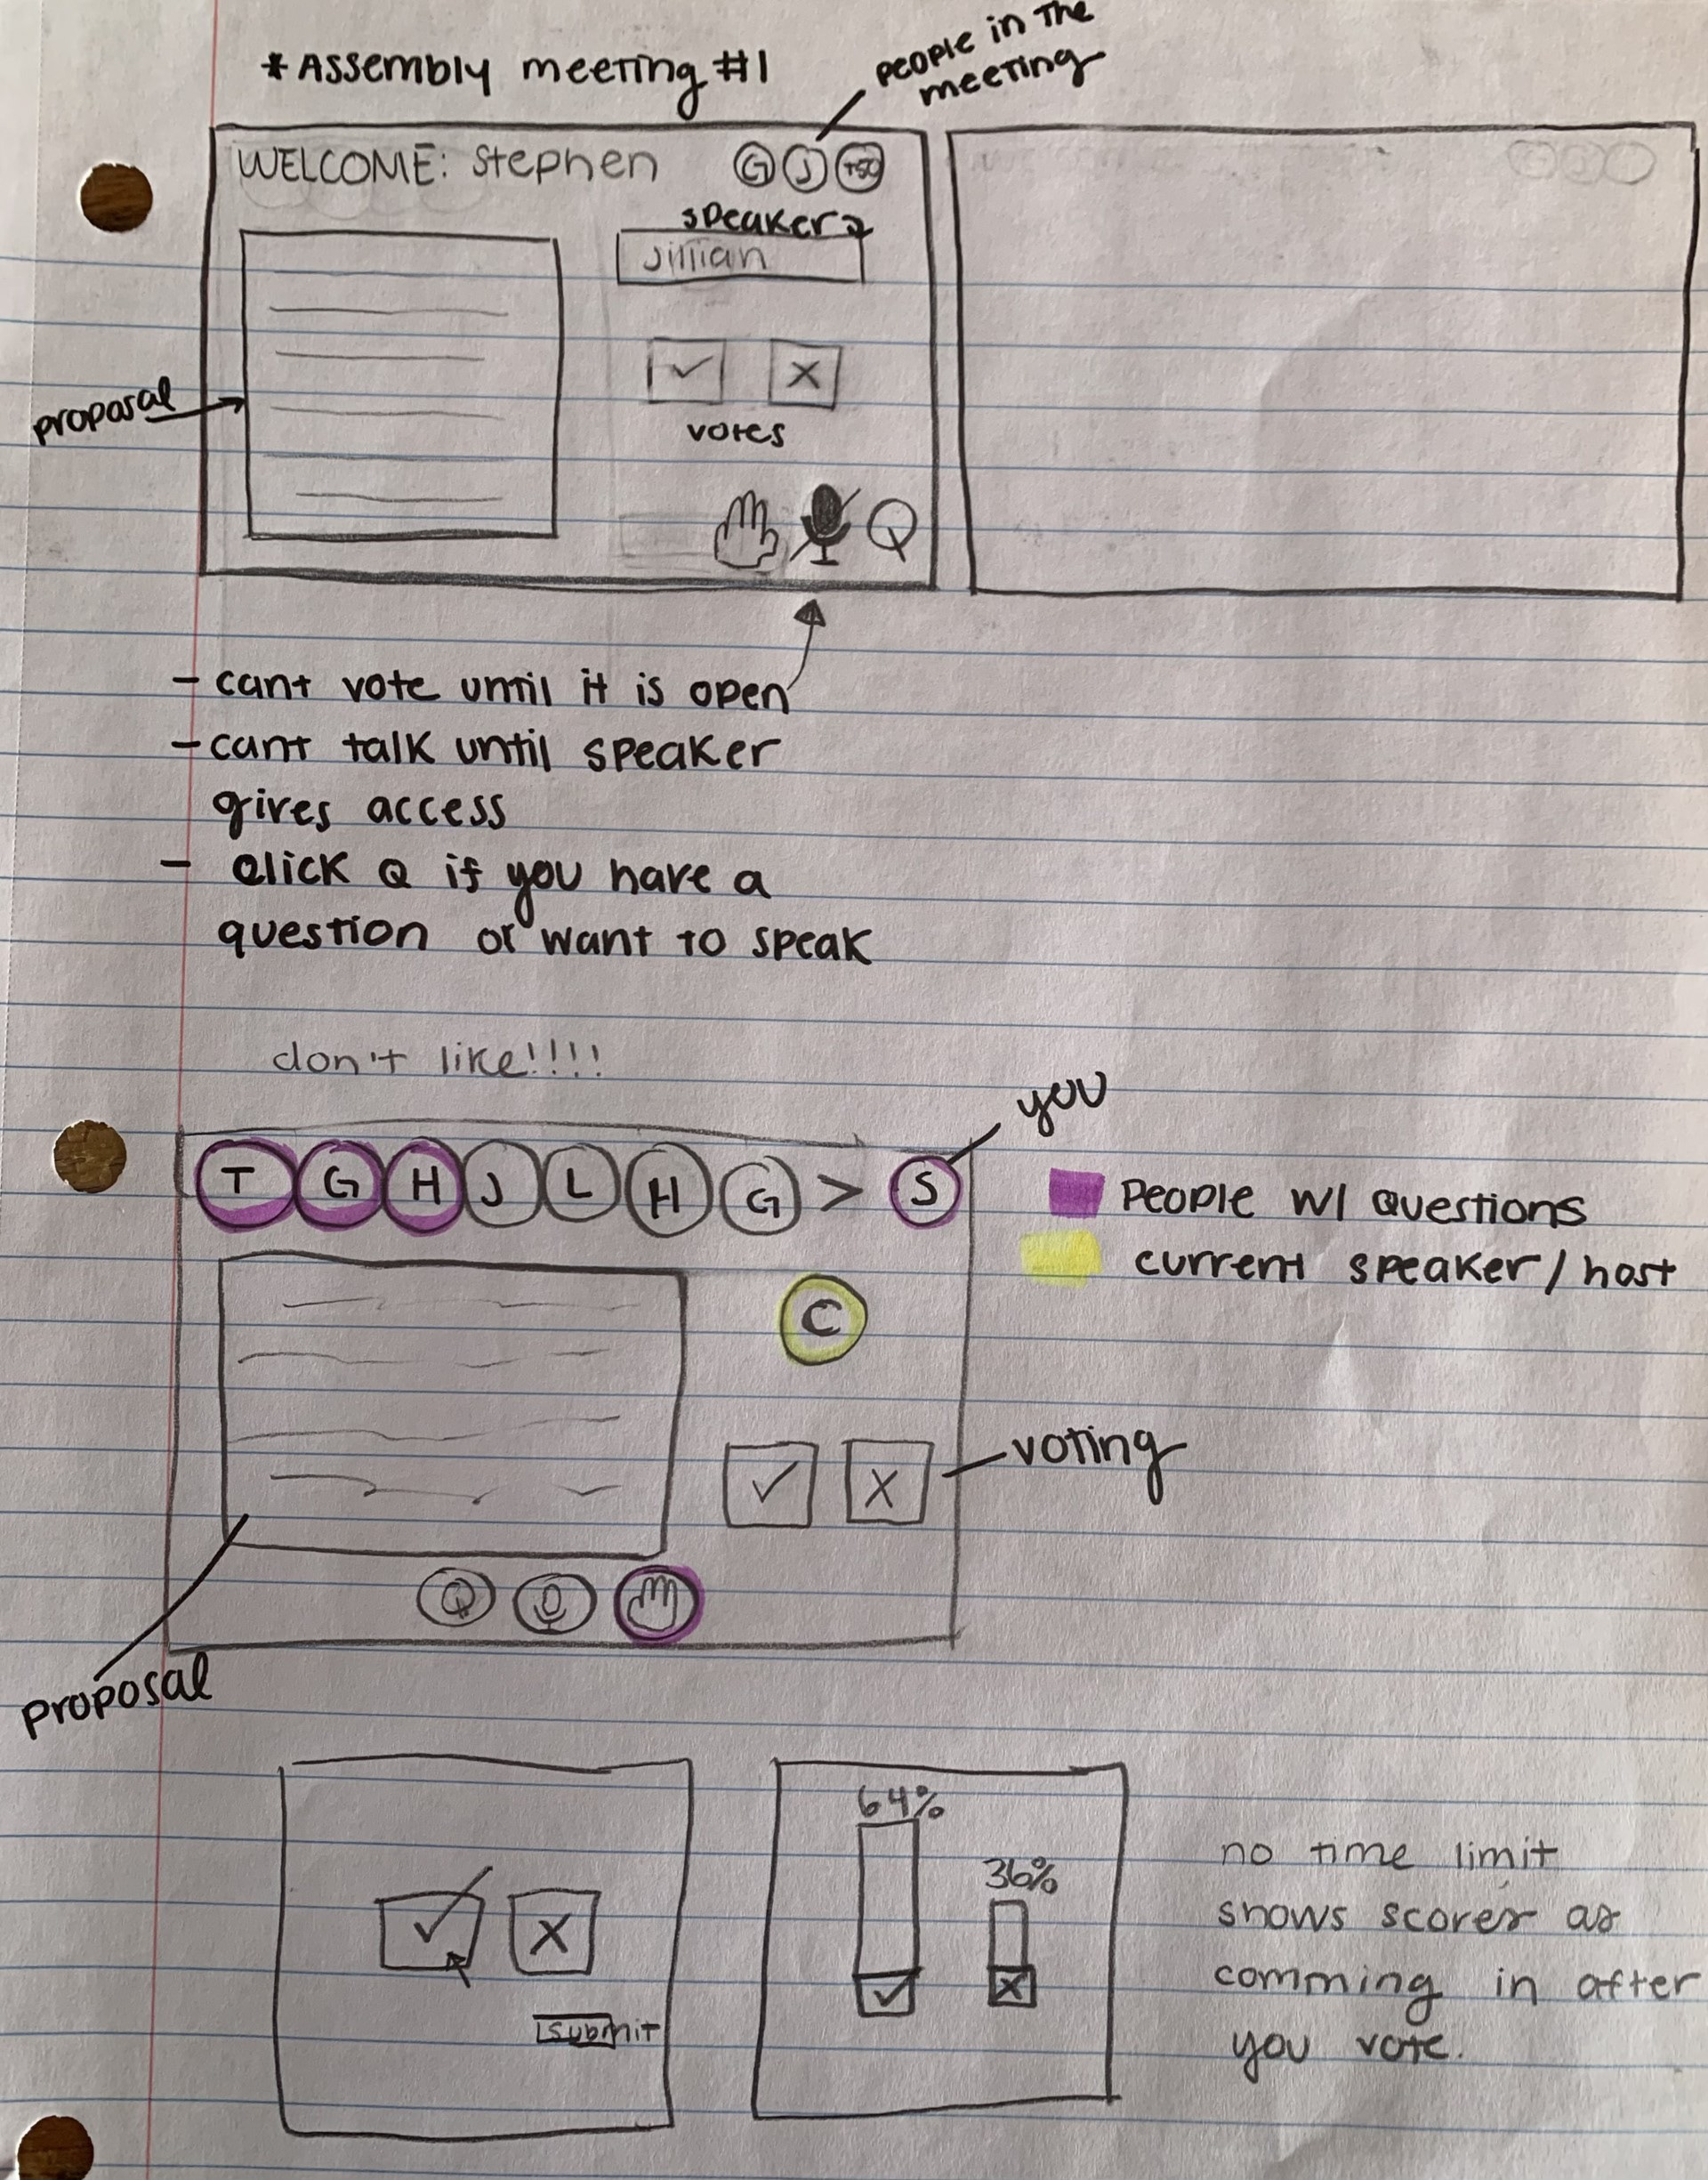 * Assembly meeting #1
people in the
meeting
WELCOME: Stephen
G J +50
speaker
Jillian
proposal
votes
Q
- cant vote until it is open
- cant talk until speaker
gives access
- click Q if you have a
question or want to speak
don't like!!!!
you
T G H J L H G > S
People w/ questions
current speaker/host
C
voting
Q
proposal
64%
36%
submit
no time limit
shows scores as
comming in after
you vote.